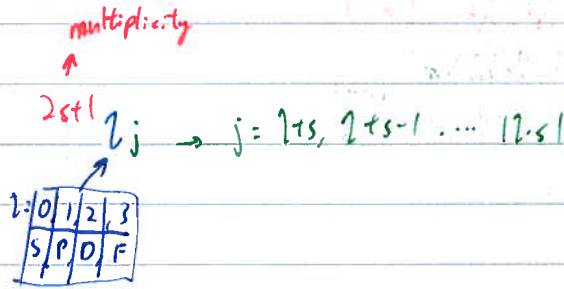 multiplicity
2s+1
l j → j = l+s, l+s-1 .... |l-s|
l: 0 1 2 3
S P D F